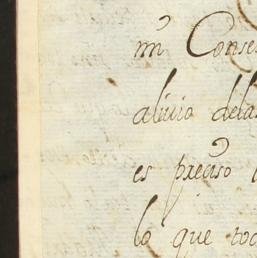 mi Conse
alivio delas
es preciso
lo que toc